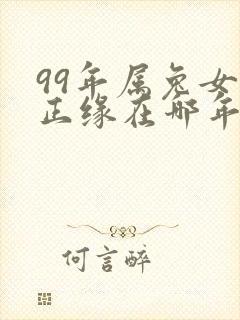 99年属兔女
正缘在哪年
何言醉